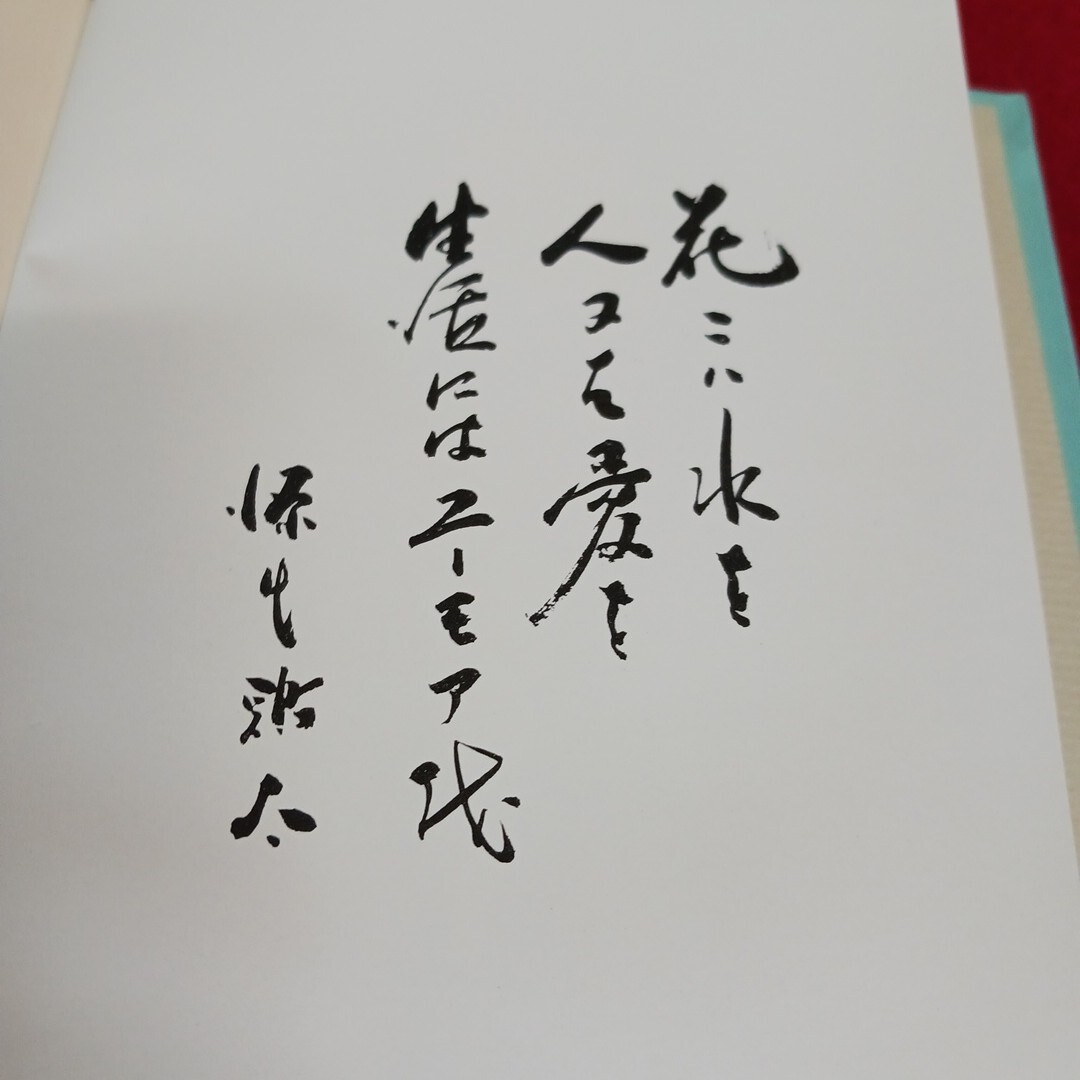 花には水を
人には愛を
生活にはユーモアを
源氏鶏太